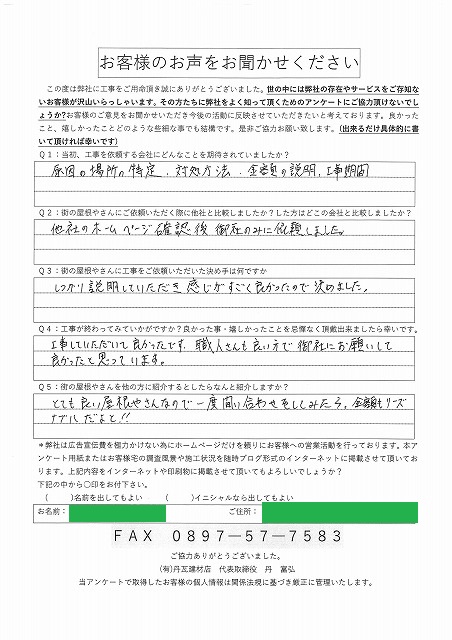 お客様のお声をお聞かせください
この度は弊社に工事をご用命頂き誠にありがとうございました。世の中には弊社の存在やサービスをご存知な
いお客様が沢山いらっしゃいます。その方たちに弊社をよく知って頂くためのアンケートにご協力頂けないでし
ょうか?お客様のご意見をお聞かせいただき今後の活動に反映させていただきたいと考えております。良かった
こと、嬉しかったことどのような些細な事でも結構です。是非ご協力お願い致します。(出来るだけ具体的に書
いて頂ければ幸いです)
Q1:当初、工事を依頼する会社にどんなことを期待されていましたか?
原因の場所の特定、対処方法、金額の説明、工事期間
Q2:街の屋根やさんにご依頼いただく際に他社と比較しましたか?した方はどこの会社と比較しましたか?
他社のホームページ確認後 御社のみに依頼しました。
Q3:街の屋根やさんに工事をご依頼いただいた決め手は何ですか
しっかり説明していただき感じがすごく良かったので決めました。
Q4:工事が終わってみていかがですか?良かった事・嬉しかったことを忌憚なく頂戴出来ましたら幸いです。
工事していただいて良かったです。職人さんも良い方で御社にお願いして
良かったと思っています。
Q5:街の屋根やさんを他の方に紹介するとしたらなんと紹介しますか?
とても良い屋根やさんなので一度問い合わせをしてみたら。金額もリーズ
ナブルだよと!!
*弊社は広告宣伝費を極力かけない為にホームページだけを頼りにお客様への営業活動を行っております。本ア
ンケート用紙またはお客様宅の調査風景や施工状況を随時ブログ形式のインターネットに掲載させて頂いてお
ります。上記内容をインターネットや印刷物に掲載させて頂いてもよろしいでしょうか?
下記の中から〇印をお付下さい。
( )名前を出してもよい ( )イニシャルなら出してもよい
お名前: ご住所:
FAX 0897-57-7583
ご協力ありがとうございました。
(有)丹瓦建材店 代表取締役 丹 富弘
当アンケートで取得したお客様の個人情報は関係法規に基づき厳正に管理いたします。